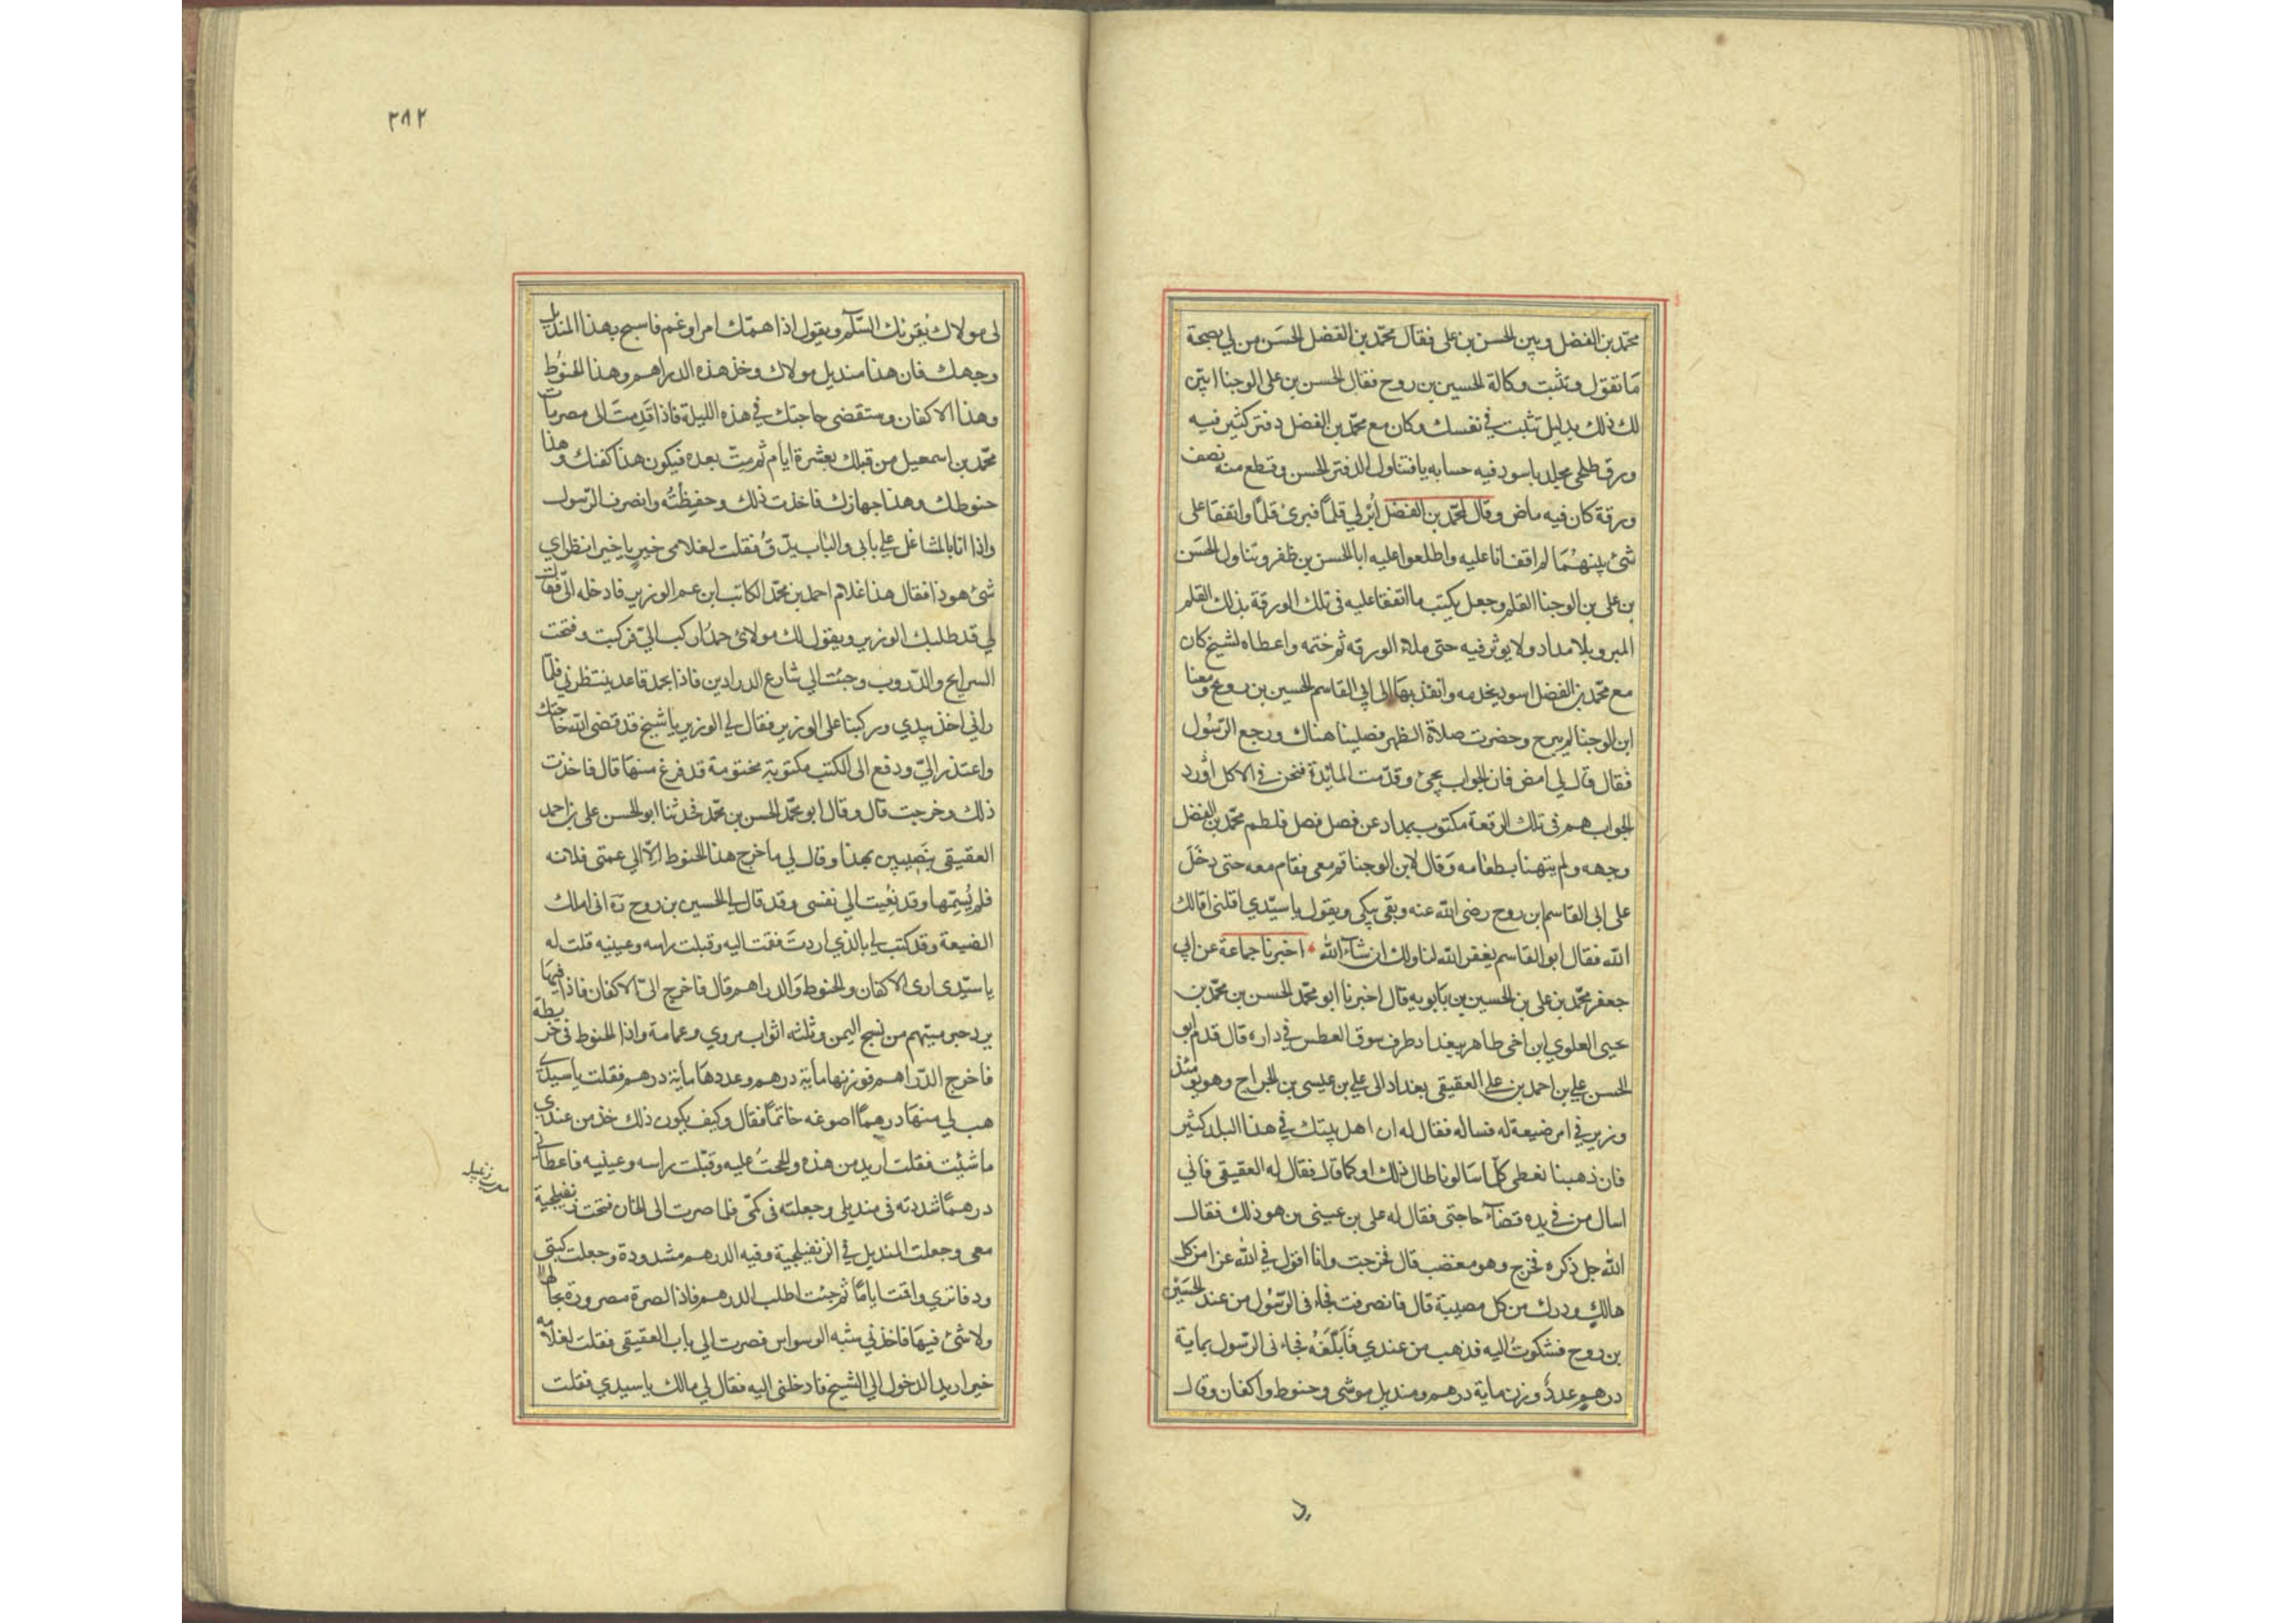 محمّد بن الفضل وبين الحسن بن على فقال محمّد بن الفضل الحسَن من لي بصحة
مَا تقول وتثبت وكالة الحسين بن روح فقال الحسن بن على الوجنا ابيّن
لك ذلك بدليل تثبت في نفسك وكان مع محمّد بن الفضل دفتر كثير فيه
ورق طلحى مجلد باسود فيه حسابه يا فتناول الدفتر الحسن وقطع منه نصف
ورقة كان فيه ماض وقال لمحمّد بن الفضل اُبْرِ لي قلماً فبرئ قلماً واتفقا على
شئ بينهُمَا لم اقف انا عليه واطلعوا عليه ابا الحسن بن ظفر وتناول الحسَن
بن على بن الوجنا القلم وجعل يكتب ما اتفقا عليه فى تلك الورقة بذلك القلم
المبرو بلا مداد ولا يوثر فيه حتى ملاء الورقه ثم ختمه واعطاه لشيخ كان
مع محمّد بن الفضل اسود يخدمه وانفذ بهَا الى ابي القاسم الحسين بن روح ومعنا
ابن الوجنا لم يبرح وحضرت صلاة الظهر فصلينا هناك ورجع الرّسُول
فقال قال لي امض فان الجواب يجئ وقدّمت المائدة فنحن في الاكل اذ ورد
الجواب هم فى تلك الرقعة مكتوب بمداد عن فصل فصل فلطم محمّد بن الفضل
وجهه ولم يتهنا بطعامه وقال لابن الوجنا قم معى فقام معه حتى دخَل
على ابى القاسم ابن روح رضى الله عنه وبقى يبكى ويقول يا سيّدي اقلنى اقالك
الله فقال ابو القاسم يغفر الله لنا ولك ان شآء الله اخبرنا جماعة عن ابي
جعفر محمّد بن على بن الحسين بن بابويه قال اخبرنا ابو محمّد الحسن بن محمّد بن
يحيى العلوي ابن اخى طاهر ببغداد طرف سوق العطس في داره قال قدم ابو
الحسن علي بن احمد بن على العقيقى بغداد الى علي بن عيسى بن الجراح وهو يومئذ
وزير في امر ضيعة له فساله فقال له ان اهل بيتك في هذا البلد كثير
فان ذهبنا نعطى كلّما سالونا طال ذلك او كما قال فقال له العقيقى فاني
اسال من في يده قضآء حاجتى فقال له على بن عيسى من هو ذلك فقال
الله جل ذكره فخرج وهو مغضب قال فخرجت وانا اقول في الله عزا من كل
هالك ودرك من كل مصيبة قال فانصرفت فجاءنى الرّسُول من عند الحسَيْن
بن روح فشكوتُ اليه فذهب من عندي فَاَبْلَغَهُ فجاءنى الرّسول بماية
درهم عددٌ وزن ماية درهم ومنديل موشى وحنوط واكفان وقال
د
٢٨٢
لى مولاك يُقرئك السّلام ويقول اذا همّك امر او غم فامسح بهذا المنديل
وجهك فان هذا منديل مولاك وخذ هذه الدراهم وهذا الحنُوط
وهذا الاكفان وستقضى حاجتك في هذه الليلة فاذا قَدِمتَ الى مصر مات
محمّد بن اسمعيل من قبلك بعشرة ايام ثم متّ بعده فيكون هذا كفنك وهذا
حنوطك وهذا جهازك فاخذت ذلك وحفِظتُه وانصرف الرّسول
واذا انا بالمشاعل على بابي والباب يدّق فقلت لغلامى خير يا خير انظر اي
شئ هو ذا فقال هذا غلام احمد بن محمّد الكاتب ابن عم الوزير فادخله الىّ فقال
لي قد طلبك الوزير ويقول لك مولائ حمدُ اركب اليّ فركبت وفتحت
الشرايح والدّروب وجئت الي شارع الدرادين فاذا بحمد قاعد ينتظرني فلمّا
راني اخذ بيدي وركبنا على الوزير فقال لي الوزير يا شيخ قد قضى الله حاجتك
واعتذر اليّ ودفع الى الكتب مكتوبة مختومة قد فرغ منهَا قال فاخذت
ذلك وخرجت قال وقال ابو محمّد الحسن بن محمّد فحدثنا ابو الحسن على بن احمد
العقيقى بنَصيبين بهذا وقال لي ما خرج هذا الحنوط الاّ الي عمتى فلانه
فلم يُسِمّها وقد نُعِيَت الي نفسى وقد قال لي الحسين بن روح ره انى املك
الضيعة وقد كتب لي بالذي اردتَ فقمت اليه وقبلت راسه وعينيه قلت له
يا سيّدى ارى الاكفان والحنوط والدراهم قال فاخرج الىّ الاكفان فاذا فيهَا
برد حبر مسّهم من نسج اليمن وثلثه اثواب مروي وعمامة واذا الحنوط فى خريطة
فاخرج الدّراهم فوزنها ماية درهم وعددهَا ماية درهم فقلت يا سيدي
هب لي منهَا درهماً اصوغه خاتماً فقال وكيف يكون ذلك خذ من عندي
ما شئت فقلت اريد من هذه والححتُ عليه وقبّلت راسه وعينيه فاعطانى
درهماً شددته فى منديلى وجعلته فى كمّى فلما صرت الى الخان فتحت زنفيلجية
معى وجعلت المنديل في الزنفيلجية وفيه الدرهم مشدودة وجعلت كتبى
ودفاترى واقمت اياماً ثم جئت اطلب الدرهم فاذا الصرة مصرورة بحالها
ولا شئ فيهَا فاخذني شبه الوسواس فصرت الي باب العقيقى فقلت لغلامه
خير اريد الدخول الي الشيخ فادخلنى اليه فقال لي مالك يا سيدي فقلت